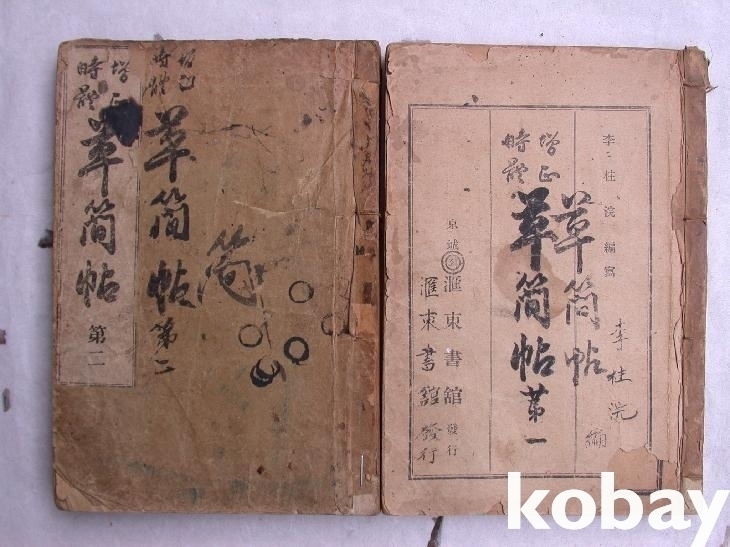 簡
增正
時體
草簡帖 第二
增正
時體
草簡帖 第二
李柱浣編寫
李柱浣編
增正
時體
草簡帖
草簡帖 第一
京城 匯東書舘 發行
匯東書舘發行
kobay